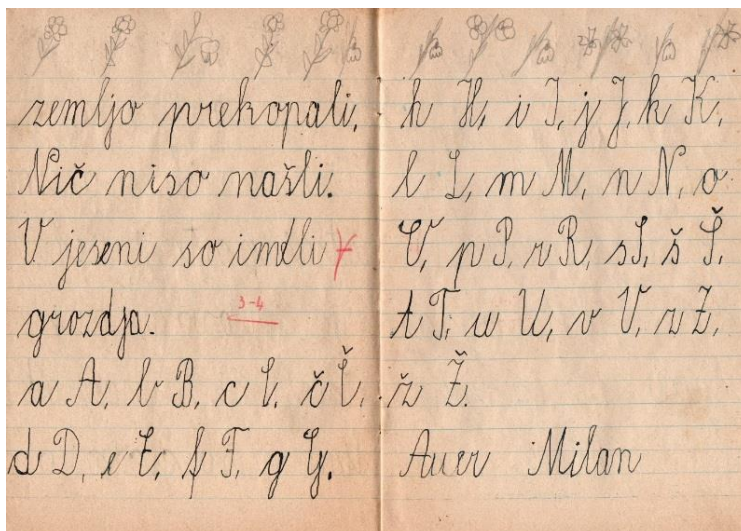 zemljo prekopali.
Nič niso našli.
V jeseni so imeli
grozdja.
3-4
a A, b B, c C, č Č,
d D, e E, f F, g G.
h H, i I, j J, k K,
l L, m M, n N, o
O, p P, r R, s S, š Š,
t T, u U, v V, z Z,
ž Ž.
Auer Milan